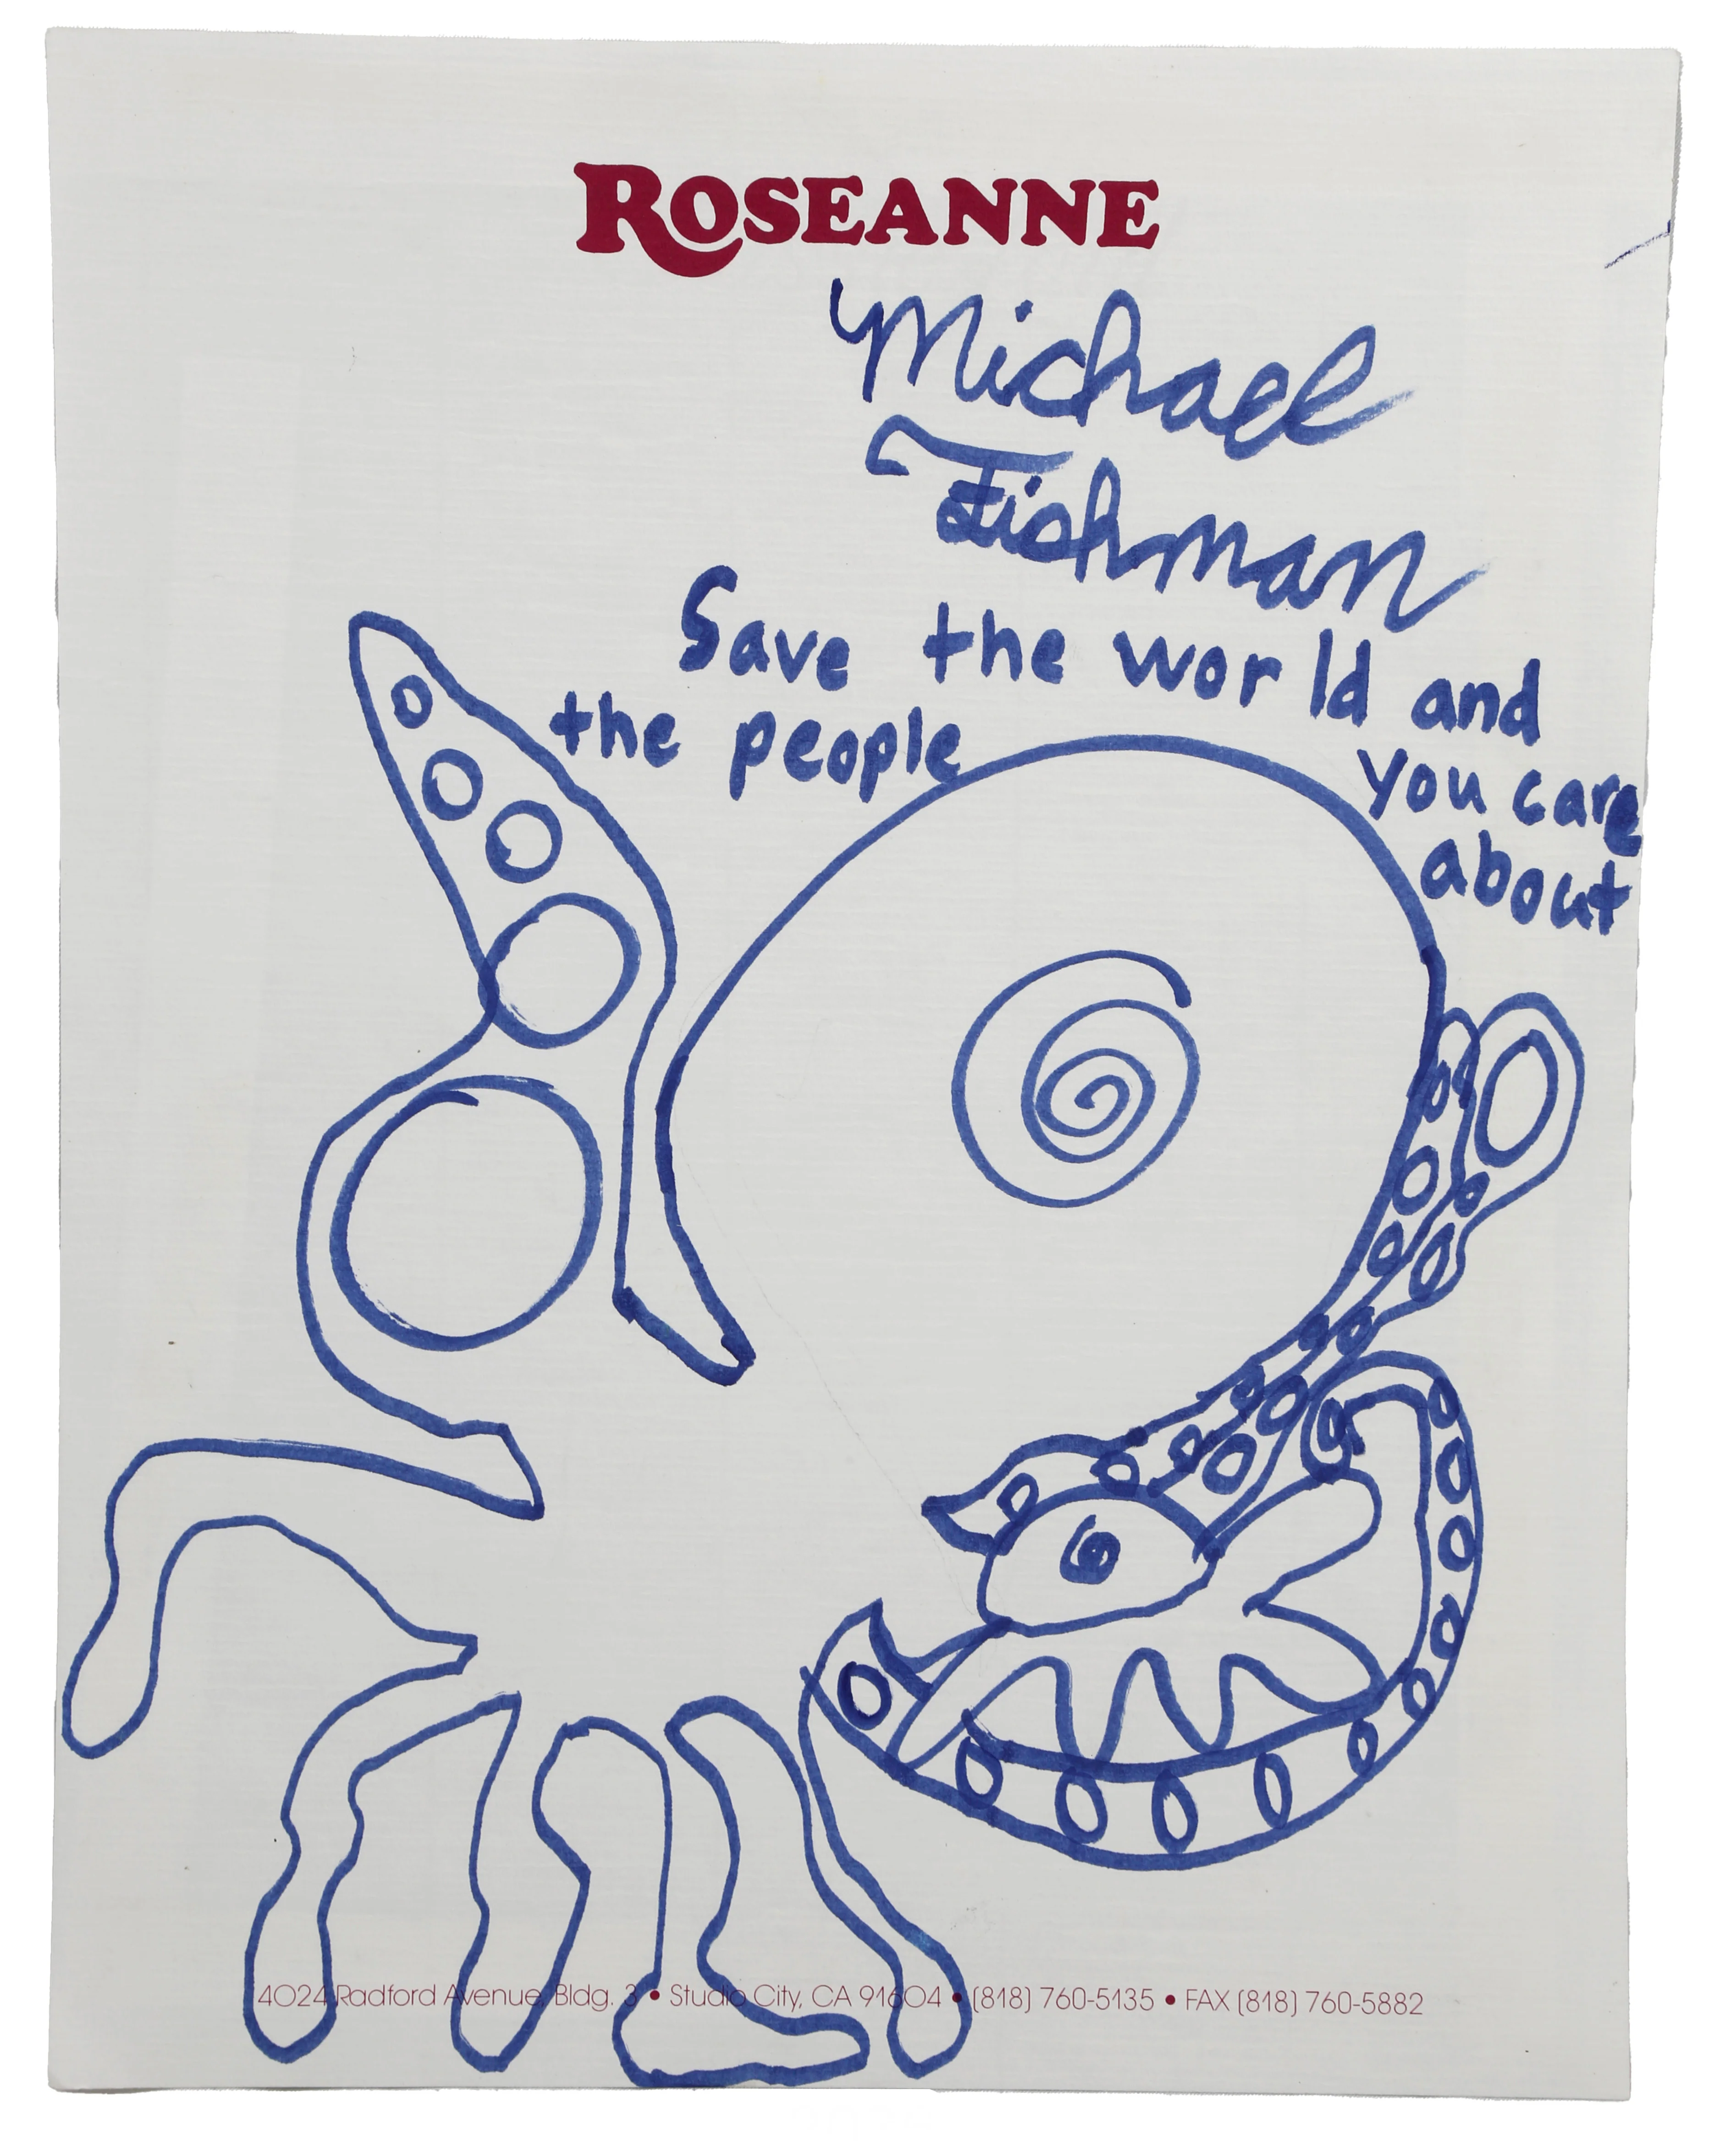 ROSEANNE
Michael
Fishman
Save the world and
the people
you care
about
4024 Radford Avenue, Bldg. 3 • Studio City, CA 91604 • (818) 760-5135 • FAX (818) 760-5882